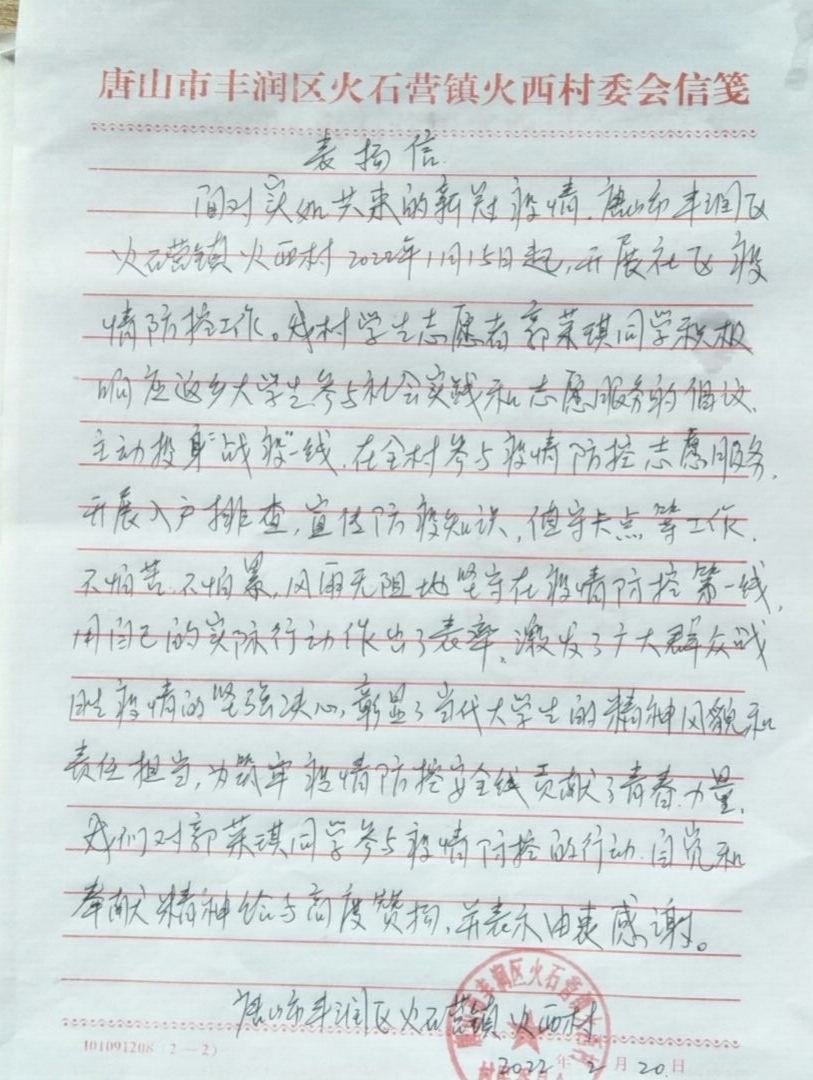 唐山市丰润区火石营镇火西村委会信笺
表扬信
面对突如其来的新冠疫情,唐山市丰润区
火石营镇火西村2022年11月15日起,开展社区疫
情防控工作。我村学生志愿者郭莱琪同学积极
响应返乡大学生参与社会实践和志愿服务的倡议,
主动投身“战疫”一线,在全村参与疫情防控志愿服务,
开展入户排查,宣传防疫知识,值守卡点等工作,
不怕苦、不怕累,风雨无阻地坚守在疫情防控第一线,
用自己的实际行动作出了表率,激发了广大群众战
胜疫情的坚强决心,彰显了当代大学生的精神风貌和
责任担当,为筑牢疫情防控安全线贡献了青春力量,
我们对郭莱琪同学参与疫情防控的行动、自觉和
奉献精神给与高度赞扬,并表示由衷感谢。
唐山市丰润区火石营镇火西村
2022年2月20日
101091208(2—2)